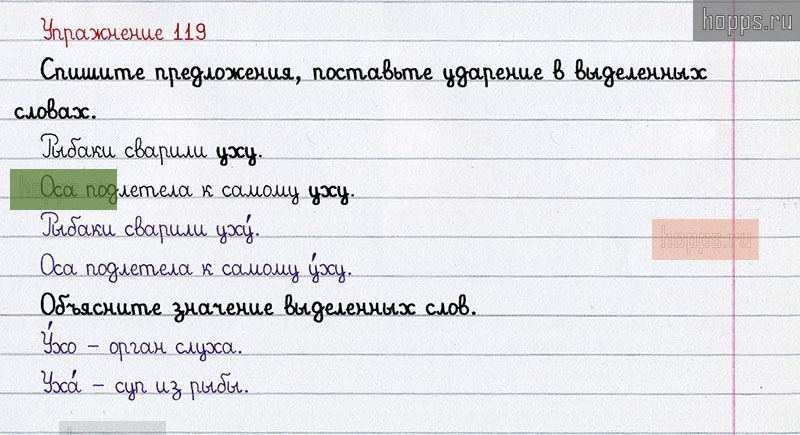 hopps.ru
Упражнение 119
Спишите предложения, поставьте ударение в выделенных
словах.
Рыбаки сварили уху.
Оса подлетела к самому уху.
Рыбаки сварили уху́.
hopps.ru
Оса подлетела к самому у́ху.
Объясните значение выделенных слов.
У́хо – орган слуха.
Уха́ – суп из рыбы.